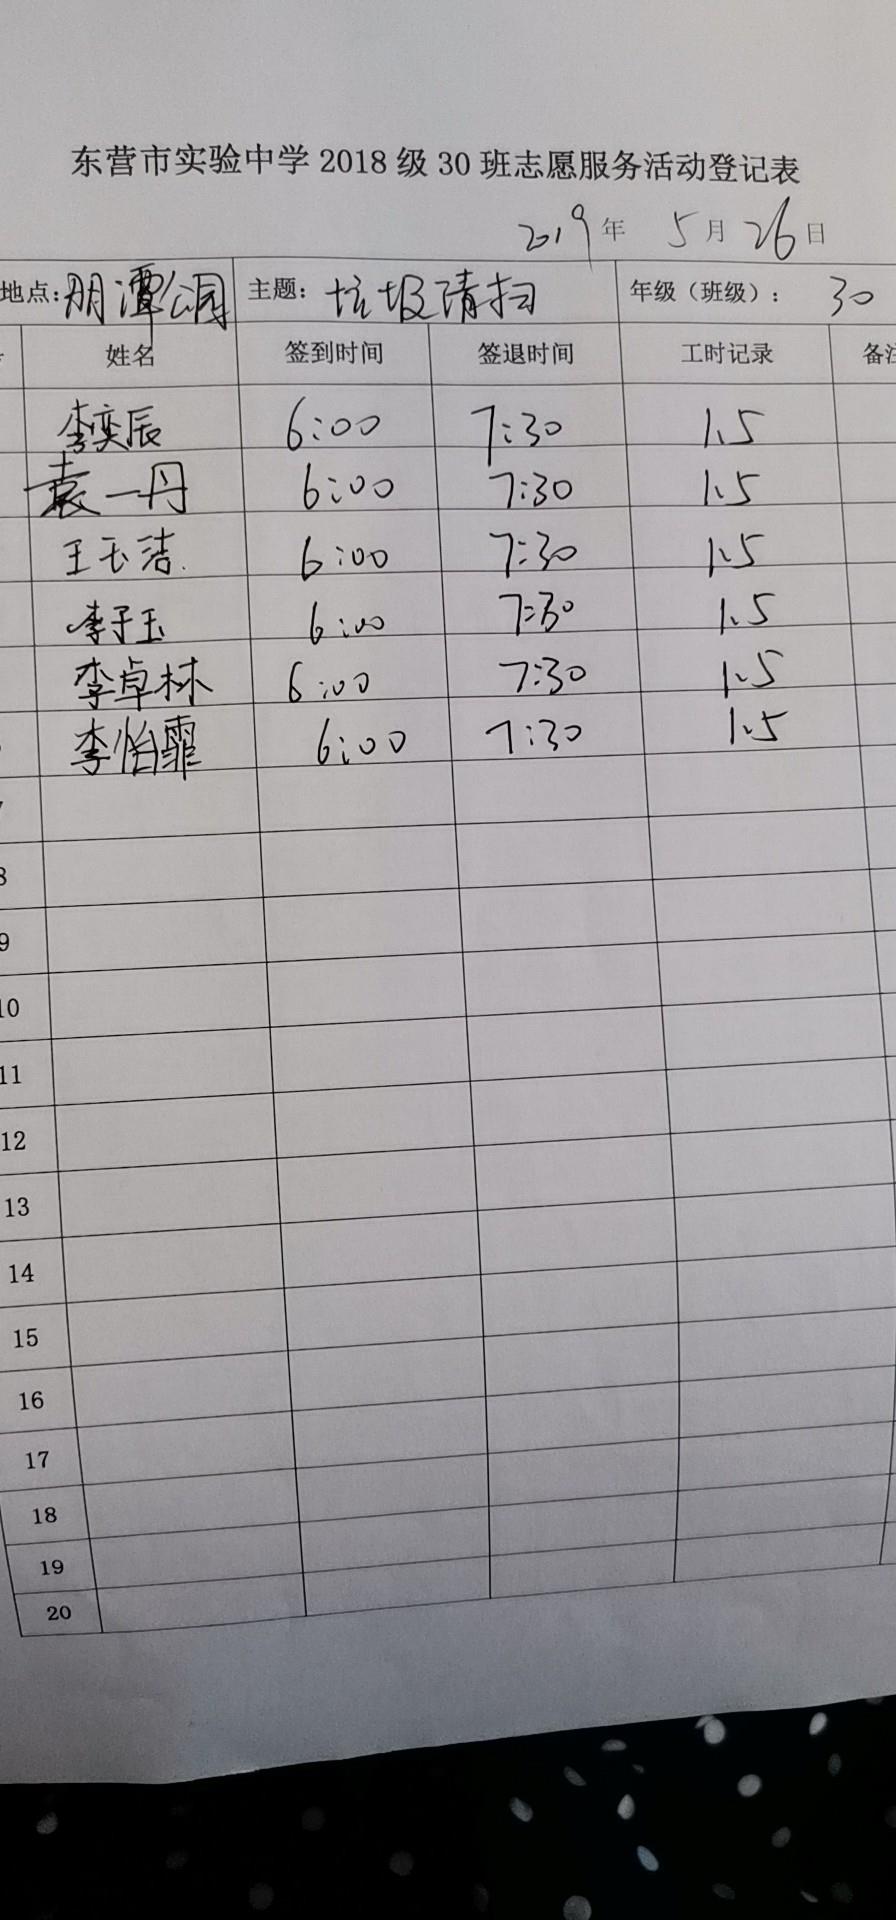 东营市实验中学 2018 级 30 班志愿服务活动登记表
2019 年 5 月 26 日
地点: 明潭公园 主题: 垃圾清扫 年级（班级）: 30
姓名 签到时间 签退时间 工时记录 备注
李奕辰 6:00 7:30 1.5
袁一丹 6:00 7:30 1.5
王玉洁 6:00 7:30 1.5
李子玉 6:00 7:30 1.5
李卓林 6:00 7:30 1.5
李怡霏 6:00 7:30 1.5
7
8
9
10
11
12
13
14
15
16
17
18
19
20